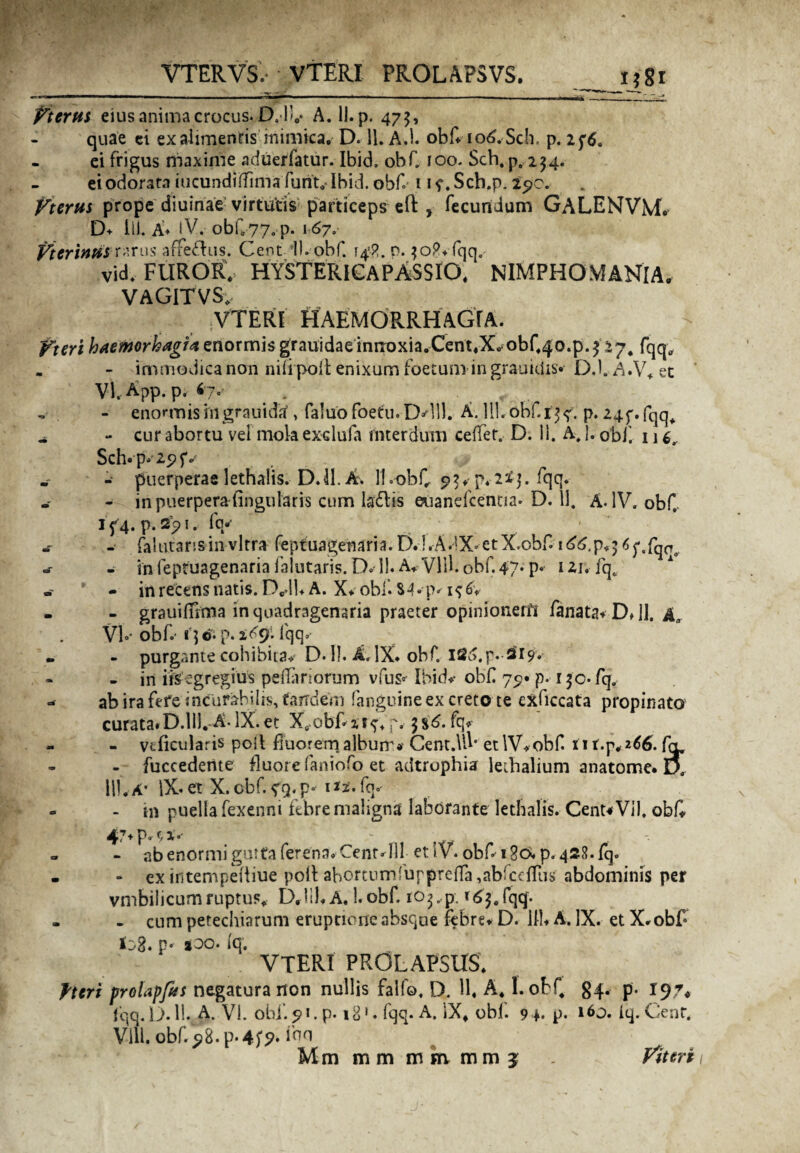 VTERVS. VTERI PROLAPSVS. 1381
Vterus eius anima crocus. D. II. A. II. p. 473,
- quae ei ex alimentis inimica. D. II. A. I. obs. 106. Sch. p. 256.
- ei frigus maxime aduersatur. Ibid. obs. 100. Sch. p. 234.
- ei odorata iucundissima sunt. Ibid. obs. 115. Sch.p. 290.
Vterus prope diuinae virtutis particeps est, secundum GALENVM.
D. III. A. IV. obs. 77. p. 167.
Vterinus rarus affectus. Cent. II. obs. 148. p. 308. sqq.
vid. FUROR. HYSTERICA PASSIO. NIMPHOMANIA.
VAGITVS.
VTERI HAEMORRHAGIA.
Vteri haemorrhagia enormis grauidae innoxia. Cent. X. obs. 40. p. 327. sqq.
- immodica non nisi post enixum foetum in grauidis. D. I. A. V. et
VI. App. p. 67.
- enormis in grauida, saluo foetu. D. III. A. III. obs. 135. p. 245. sqq.
- cur abortu vel mola exclusa interdum cesset. D. II. A. I. obs. 116.
Sch. p. 295.
- puerperae lethalis. D. II. A. II. obs. 93. p. 223. sqq.
- in puerpera singularis cum lactis euanescentia. D. II. A. IV. obs.
154. p. 291. sq.
- salutaris in vltra septuagenaria. D. I. A. IX. et X. obs. 166. p. 365. sqq.
- in septuagenaria salutaris. D. II. A. VIII. obs. 47. p. 121. sq.
- in recens natis. D. II. A. X. obs. 84. p. 156.
- grauissima in quadragenaria praeter opinionem sanata. D. II. A.
VI. obs. 136. p. 269. sqq.
- purgante cohibita. D. II. A. IX. obs. 126. p. 219.
- in iis egregius pessariorum vsus. Ibid. obs. 79. p. 130. sq.
ab ira fere incurabilis, tandem sanguine ex creto te exsiccata propinato
curata. D. III. A. IX. et X. obs. 215. p. 386. sq.
- vesicularis post fluorem album. Cent. III. et IV. obs. 111. p. 266. sq.
- succedente fluore sanioso et adtrophia lethalium anatome. D.
III. A. IX. et X. obs. 59. p. 122. sq.
- in puella sexenni febre maligna laborante lethalis. Cent. VII. obs.
47. p. 52.
- ab enormi gutta serena. Cent. III. et IV. obs. 180. p. 428. sq.
- ex intempestiue post abortum suppressa, abscessus abdominis per
vmbilicum ruptus. D. III. A. I. obs. 103. p. 163. sqq.
- cum petechiarum eruptione absque febre. D. III. A. IX. et X. obs.
108. p. 200. sq.
VTERI PROLAPSUS.
Vteri prolapsus negatura non nullis falso. D. II. A. I. obs. 84. p. 197.
sqq. D. II. A. VI. obs. 91. p. 181. sqq. A. IX. obs. 94. p. 160. sq. Cent.
VIII. obs. 98. p. 459. sqq
Mm mm mm mm 3 Viteri